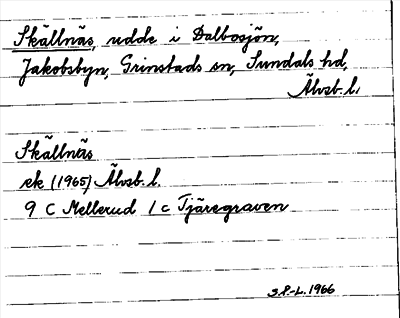 Skällnäs, udde i Dalbosjön,
Jakobsbyn, Grinstads sn, Sundals hd,
Älvsb. l.
Skällnäs
ek (1965) Älvsb. l.
9 C Mellerud 1 c Tjäregraven
S.P-L. 1966